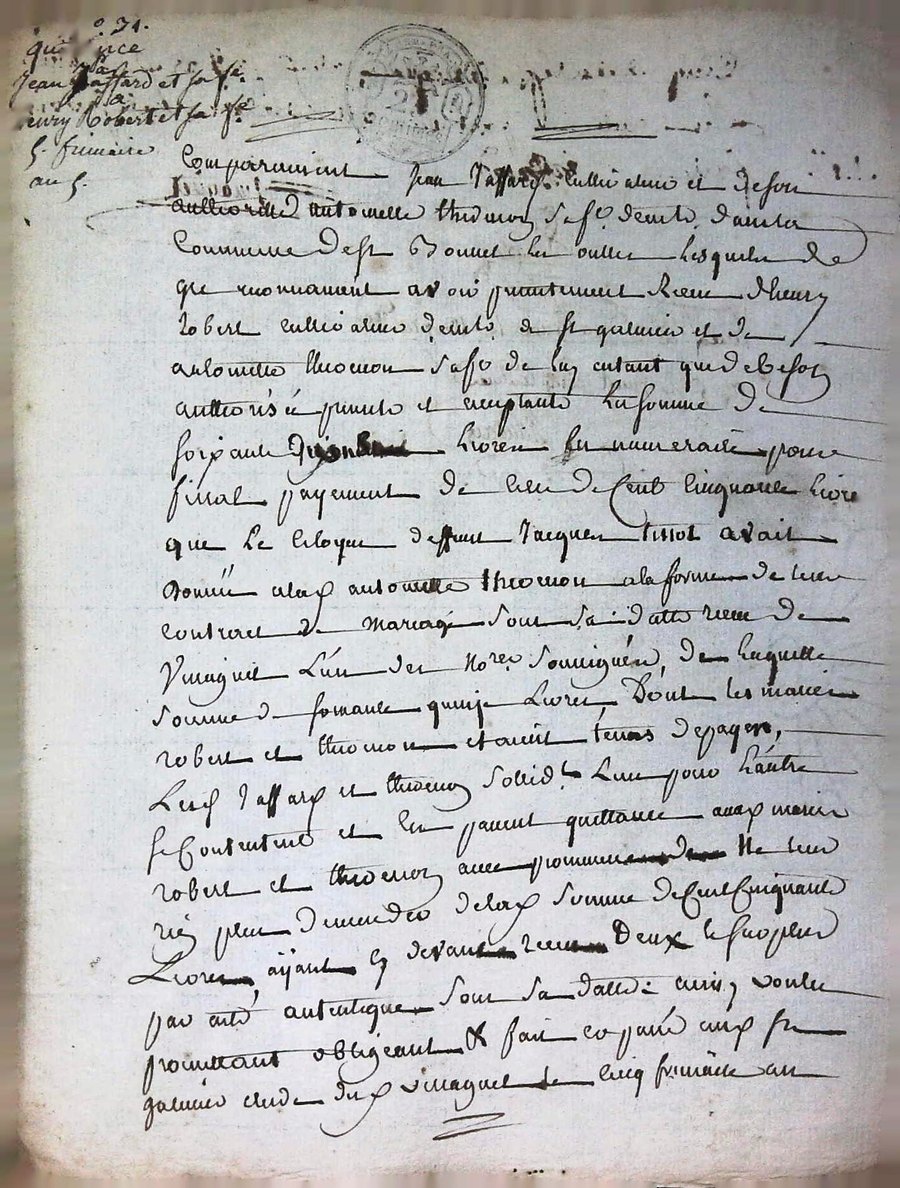 31.
Jean Jaffard et sa fe.
a
henry Robert et sa fe
5. frimaire
an 5.
Comparaissent Jean Jaffard cultivateur et de son
authorité antoinette thevenon sa fe. demts. dans la
Commune de st Bonnet les oulles lesquels de
gré reconnaissent avoir presentement Receu d'henry
robert cultivateur demts. de st galmier et de
antoinette thevenon sa fe. de luy entant que de besoin
authorisée presents et acceptants la somme de
soixante livres en numeraire pour
final payement de celle de Cent Cinquante livres
que Le Citoyen deffunt Jacques tissot avait
donnée a lad antoinette thevenon a la forme de leur
contract de mariage sous sa datte receu de
Vinagnet L'un des Nores. soussignés, de laquelle
somme de soixante quinze Livres Dont les mariés
robert et thevenon etaient tenus de payer,
Lesd Jaffard et thevenon sollidt. L'un pour L'autre
se Contentent et en passent quittance auxd mariés
robert et thevenon avec promesse de Ne leur
rien plus demander de lad somme de Cent Cinquante
Livres, ayant cy devant receu Deux le surplus
par acte autentique sous sa datte: ainsy voulu
promettant obligeant & fait et passé aud st
galmier etude dud Vinagnet le cinq frimaire an